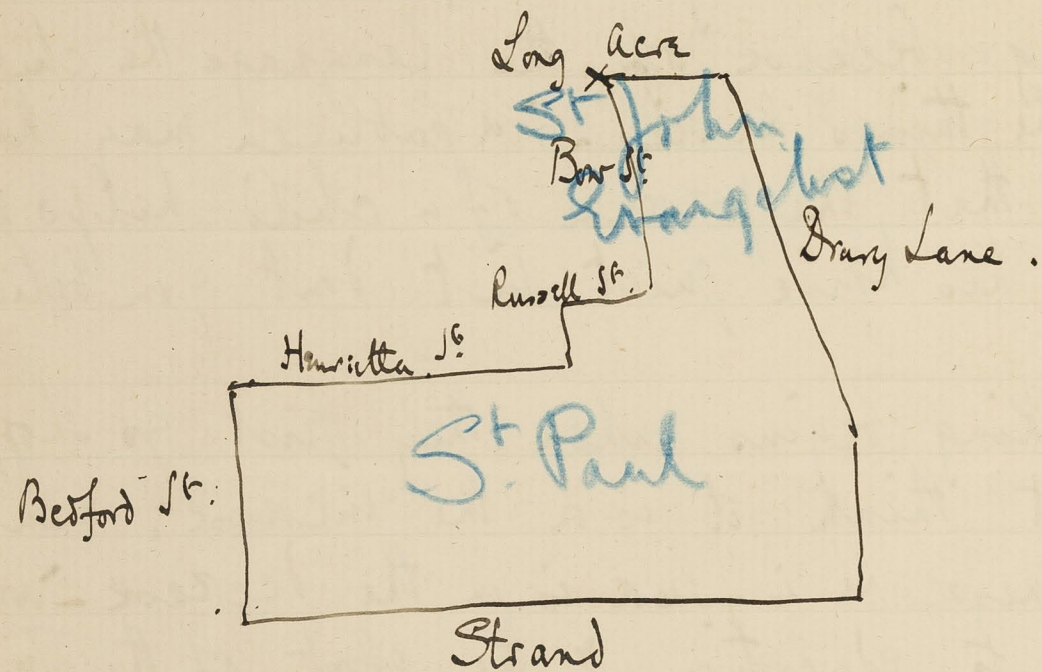 Long Acre
St John
Bow St.
Evangelist
Drury Lane.
Russell St.
Henrietta St.
St. Paul
Bedford St.
Strand